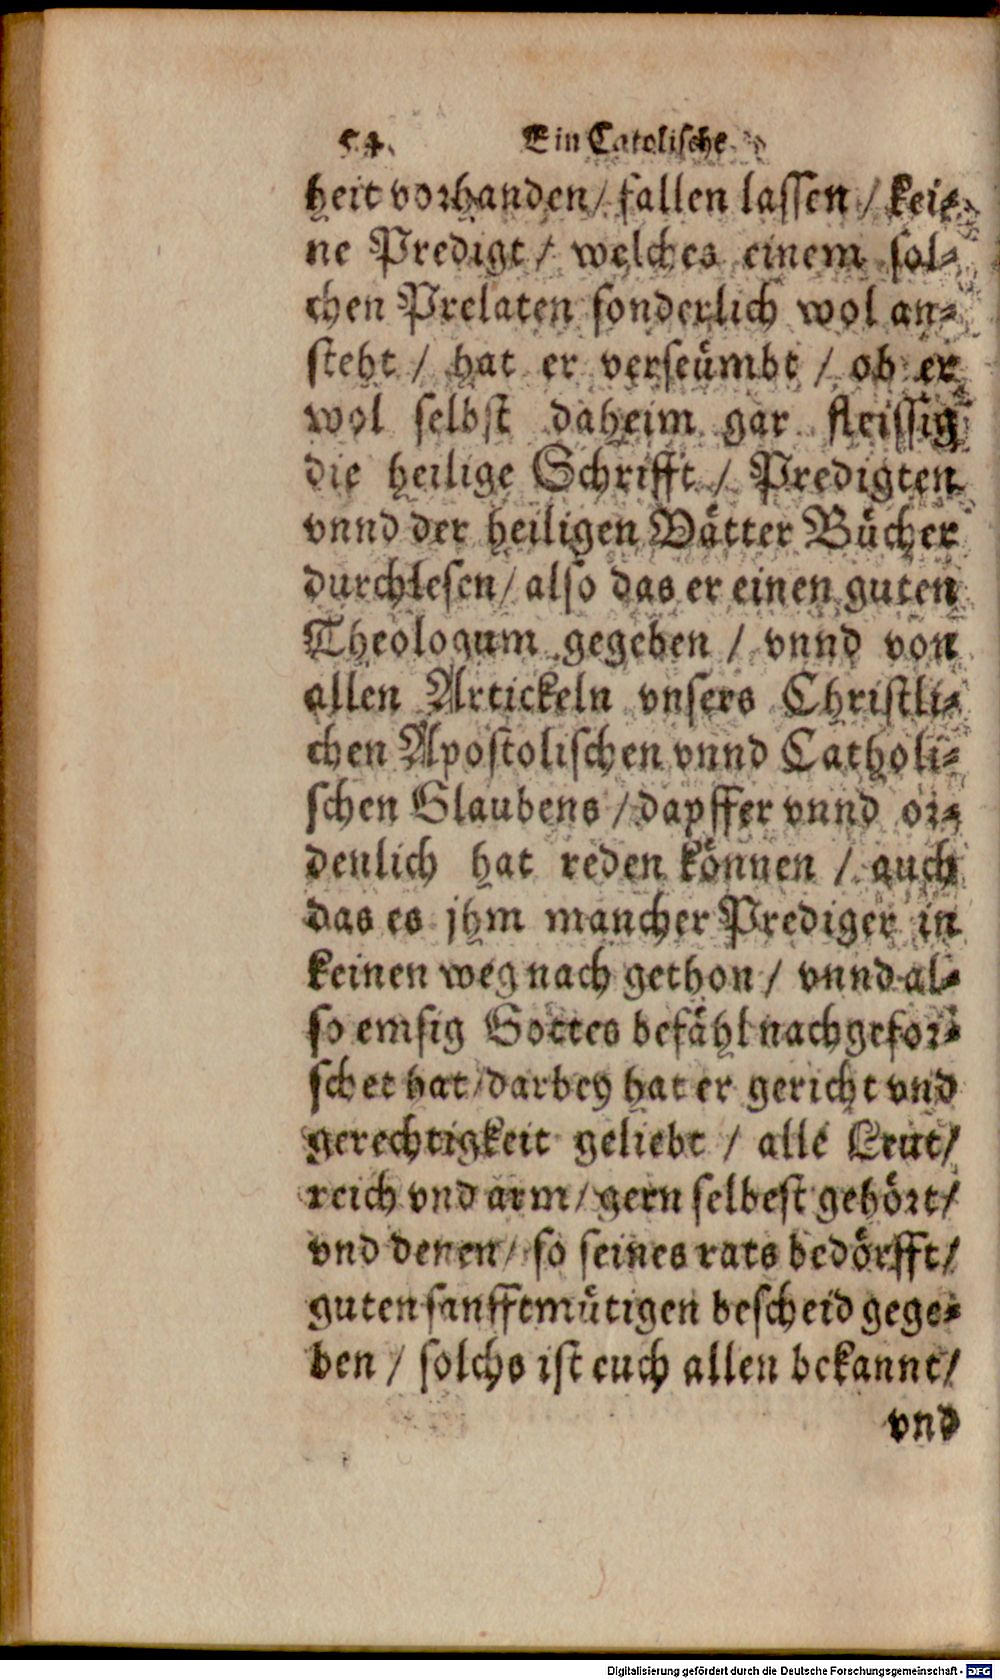 54. Ein Catolische
heit vorhanden / fallen lassen / kei-
ne Predigt / welches einem sol-
chen Prelaten sonderlich wol an-
steht / hat er verseümbt / ob er
wol selbst daheim gar fleissig
die heilige Schrifft / Predigten
vnnd der heiligen Vätter Bücher
durchlesen / also das er einen guten
Theologum gegeben / vnnd von
allen Artickeln vnsers Christli-
chen Apostolischen vnnd Catholi-
schen Glaubens / dapffer vnnd or-
denlich hat reden können / auch
das es jhm mancher Prediger in
keinen weg nach gethon / vnnd al-
so emsig Gottes befähl nachgefor-
schet hat / darbey hat er gericht vnd
gerechtigkeit geliebt / alle Leut /
reich vnd arm / gern selbest gehört /
vnd denen / so seines rats bedörfft /
guten sanfftmütigen bescheid gege-
ben / solchs ist euch allen bekannt /
vnd
Digitalisierung gefördert durch die Deutsche Forschungsgemeinschaft - DFG